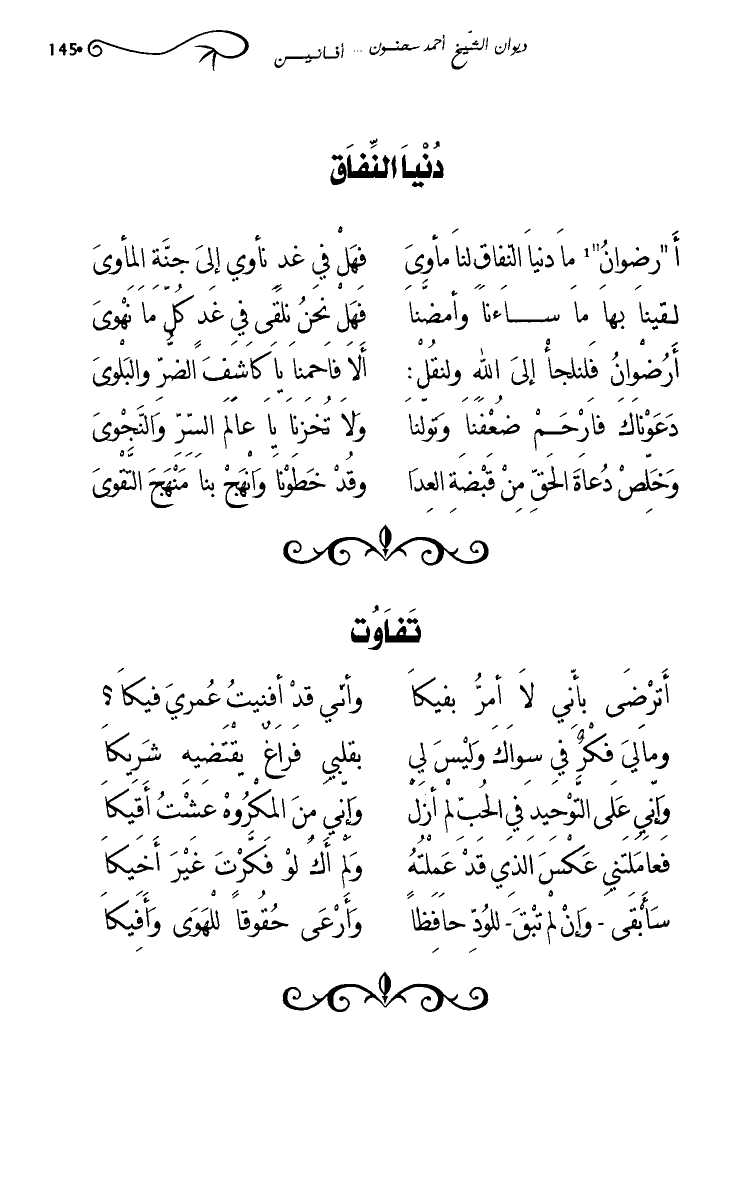 ديوان الشّيخ أحمد سحنون ... أفانين 145
دُنْيَا النِّفَاق
أَ "رضوانُ"1 ما دنيا النّفاق لنا مأوىَ فهَلْ في غدٍ نأوي إلىَ جنَّة المأوىَ
لقينا بها ما ساءنا وأمضَّنا فهَلْ نحنُ نلقَى في غدٍ كلَّ ما نهْوى
أرُضْوانُ فلنلجأْ إلىَ الله ولنقلْ: ألاَ فاحمنا يا كاشفَ الضرّ والبَلْوى
دَعَوْناكَ فارْحَمْ ضعْفَنا وتولّنا ولاَ تُخزنا يا عالم السّرّ والنَّجْوى
وَخَلِّصْ دُعاةَ الحَقّ مِنْ قَبْضةِ العِدا وقُدْ خَطوْنا وَانْهجْ بنا مَنْهَجَ التّقْوى
تَفَاوُت
أَترْضَى بأنّني لاَ أمرُّ بفيكا وأنّني قدْ أفنيتُ عُمريَ فيكا ؟
وماليَ فكْرٌ في سواكَ وَليْسَ لي بقلبي فَراغٌ يقْتضيهِ شريكا
وَإنّي عَلى التَّوْحيد في الحُبّ لمْ أزلْ وَإنّي منَ المكْرُوهْ عشْتُ أقيكا
فعامَلتَني عكْسَ الذي قدْ عَملْتُهُ وَلمْ أكُ لوْ فكَّرْتَ غيْرَ أخيكا
سَأبْقى - وَإنْ لمْ تبْقَ- للوُدِّ حافظاً وَأرْعَى حُقُوقاً للْهَوَى وَأفيكا